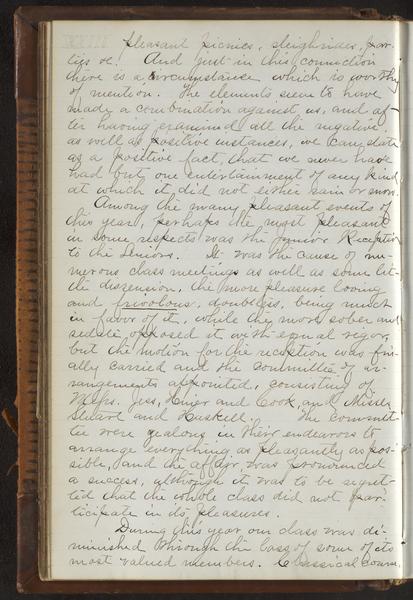 pleasant picnics, sleighrides, par-
ties &c. And just in this connection
there is a circumstance which is worthy
of mention. The elements seem to have
made a combination against us, and af-
ter having examined all the negative
as well as positive instances, we can state
as a positive fact, that we never have
had but one entertainment of any kind,
at which it did not either rain or snow.
Among the many pleasant events of
this year, perhaps the most pleasant
in some respects was the Junior Reception
to the Seniors. It was the cause of nu-
merous class meetings as well as some lit-
tle dissension, the more pleasure loving
and frivolous, doubtless, being much
in favor of it, while the more sober and
sedate opposed it with equal vigor,
but the motion for the reception was fin-
ally carried and the committee of ar-
rangements appointed, consisting of
Messrs. Jess, and Cook, and Misses
Stuart and Haskell. The commit-
tee were zealous in their endeavors to
arrange everything as pleasantly as pos-
sible, and the affair was pronounced
a success, although it was to be regret-
ted that the whole class did not par-
ticipate in its pleasures.
During this year our class was di-
minished through the loss of some of its
most valued members. Classical cours,